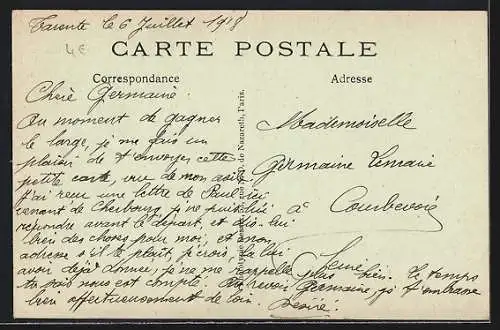 Tarente le 6 Juillet 1918
4E
CARTE POSTALE
Correspondance
Adresse
Chère Germaine.
Au moment de gagner
le large, je me fais un
plaisir de t'envoyer cette
petite carte, vue de mon
J'ai reçu une lettre de Paul
venant de Cherbourg, je ne puis lui
répondre avant le départ, et dis-lui
bien des choses pour moi, et mon
adresse s'il te plaît, je crois la lui
avoir déjà donnée, je ne me rappelle plus bien. Le temps
nous est compté. Au revoir Germaine, je t'embrasse
bien affectueusement de loin. Désiré.
Mademoiselle
Germaine Lemaire
à Courbevoie
Seine
de Nazareth, Paris.